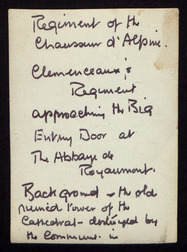 Regiment of the
Chausseur d'Alpine.
Clemenceaux's
Regiment
approaching the Big
Entry Door at
The Abbaye de
Royaumont.
Background - the old
ruined tower of the
Cathedral - destroyed by
the Commune in